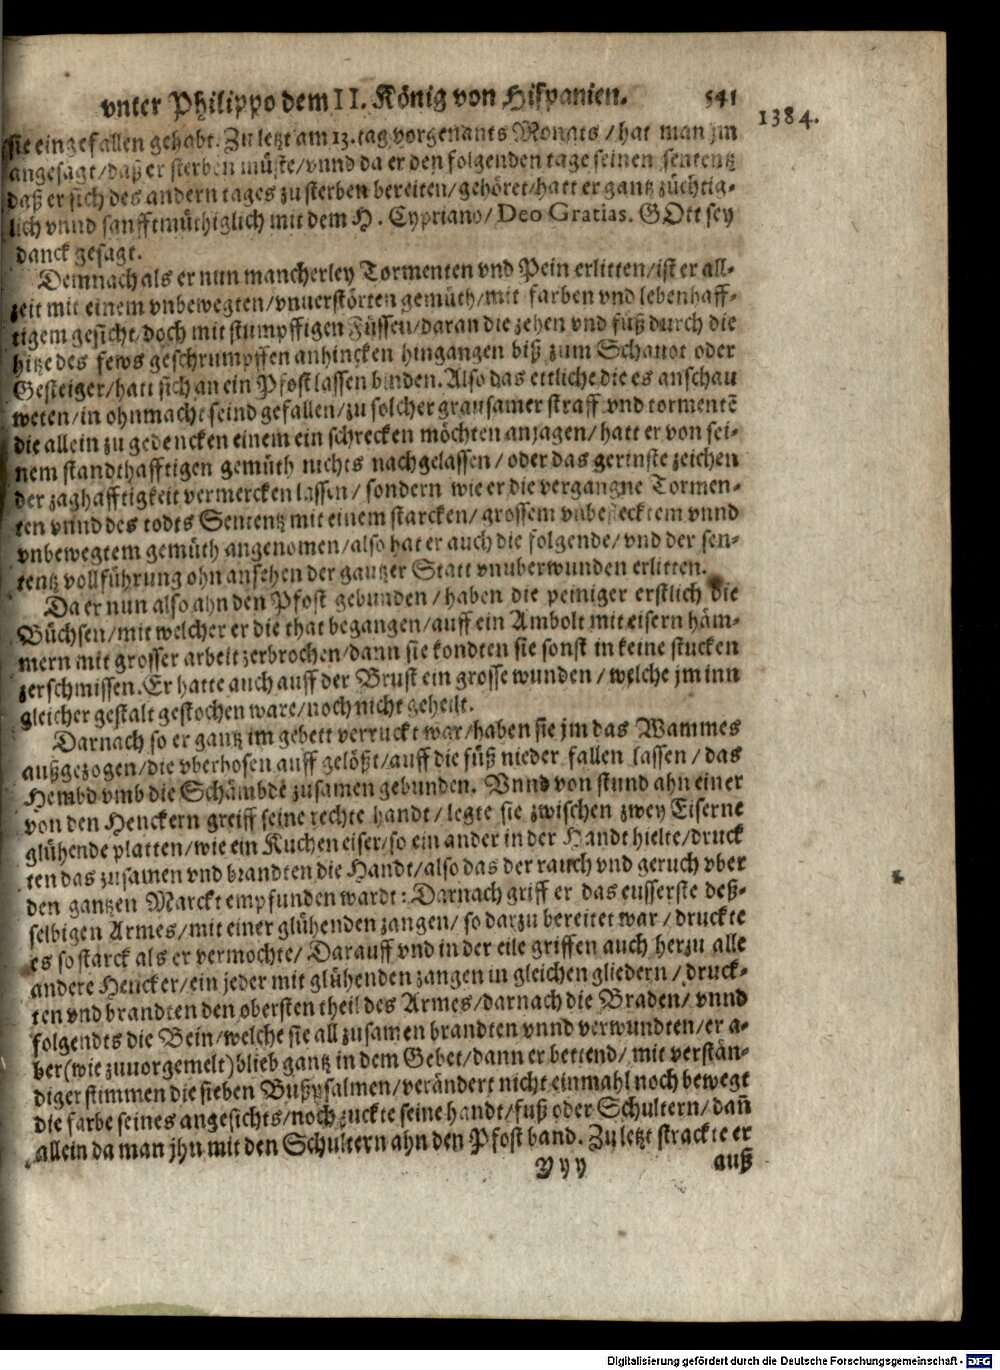 vnter Philippo dem II. König von Hispanien. 541
1384.
sie eingefallen gehabt. Zu letzt am 13. tag vorgenants Monats / hat man jm
angesagt / daß er sterben müste / vnnd da er den folgenden tage seinen sententz
daß er sich des andern tages zu sterben bereiten / gehöret / hatt er gantz züchtig-
lich vnnd sanfftmüthiglich mit dem H. Cypriano / Deo Gratias. GOtt sey
danck gesagt.
Demnach als er nun mancherley Tormenten vnd Pein erlitten / ist er all-
zeit mit einem vnbewegten / vnuerstörten gemüth / mit farben vnd lebenhaff-
tigem gesicht / doch mit stumpffigen Füssen / daran die zehen vnd füß durch die
hitze des fewrs geschrumpffen anhincken hingangen biß zum Schauot oder
Gesteiger / hatt sich an ein Pfost lassen binden. Also das ettliche die es anschau
weten / in ohnmacht seind gefallen / zu solcher grausamer straff vnd tormentē
die allein zu gedencken einem ein schrecken möchten anjagen / hatt er von sei-
nem standthafftigen gemüth nichts nachgelassen / oder das gerinste zeichen
der zaghafftigkeit vermercken lassen / sondern wie er die vergangne Tormen-
ten vnnd des todts Sententz mit einem starcken / grossem vnbeflecktem vnnd
vnbewegtem gemüth angenomen / also hat er auch die folgende / vnd der sen-
tentz vollführung ohn ansehen der gantzer Statt vnuberwunden erlitten.
Da er nun also ahn den Pfost gebunden / haben die peiniger erstlich die
Büchsen / mit welcher er die that begangen / auff ein Ambolt mit eisern häm-
mern mit grosser arbeit zerbrochen / dann sie kondten sie sonst in keine stucken
zerschmissen. Er hatte auch auff der Brust ein grosse wunden / welche jm inn
gleicher gestalt gestochen ware / noch nicht geheilt.
Darnach so er gantz im gebett verruckt war / haben sie jm das Wammes
außgezogen / die vberhosen auff gelößt / auff die füß nieder fallen lassen / das
Hembd vmb die Schämbdē zusamen gebunden. Vnnd von stund ahn einer
von den Henckern greiff seine rechte handt / legte sie zwischen zwey Eiserne
glühende platten / wie ein Kuchen eiser / so ein ander in der Handt hielte / druck
ten das zusamen vnd brandten die Handt / also das der rauch vnd geruch vber
den gantzen Marckt empfunden wardt : Darnach griff er das eusserste deß-
selbigen Armes / mit einer glühenden zangen / so darzu bereitet war / druckte
es so starck als er vermochte / Darauff vnd in der eile griffen auch herzu alle
andere Hencker / ein jeder mit glühenden zangen in gleichen gliedern / druck-
ten vnd brandten den obersten theil des Armes / darnach die Braden / vnnd
folgendts die Bein / welche sie all zusamen brandten vnnd verwundten / er a-
ber (wie zuuor gemelt) blieb gantz in dem Gebet / dann er bettend / mit verstän-
diger stimmen die sieben Bußpsalmen / verändert nicht einmahl noch bewegt
die farbe seines angesichts / noch zuckte seine handt / fuß oder Schultern / dañ
allein da man jhn mit den Schultern ahn den Pfost band. Zu letzt strackte er
Yyy auß
Digitalisierung gefördert durch die Deutsche Forschungsgemeinschaft - DFG